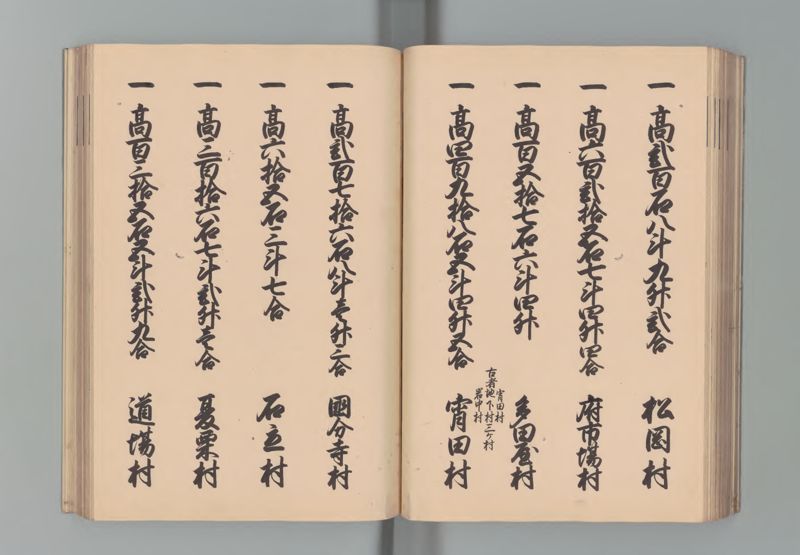 一 高弐百石八斗九升弐合 松岡村
一 高六百弐拾五石七斗四升四合 府市場村
一 高百五拾七石六斗四升 多田屋村
一 高四百九拾八石五斗四升五合 宵田村
宵田村
古者池下村三ケ村
岩中村
一 高弐百七拾六石八斗壱升三合 國分寺村
一 高六拾五石三斗七合 石立村
一 高三百拾六石七斗弐升壱合 夏栗村
一 高百三拾五石五斗弐升九合 道場村